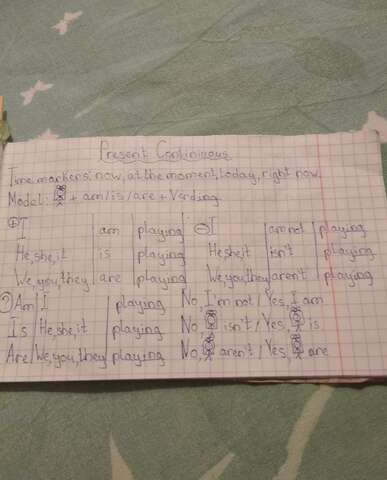 Present Continuous
Time markers: now, at the moment, today, right now.
Model: + am/is/are + Verbing.
+ I am playing - I am not playing
He, she, it is playing He, she, it isn't playing
We, you, they are playing We, you, they aren't playing
? Am I playing No, I'm not/Yes, I am
Is He, she, it playing No, isn't/Yes, is
Are We, you, they playing No, aren't/Yes, are